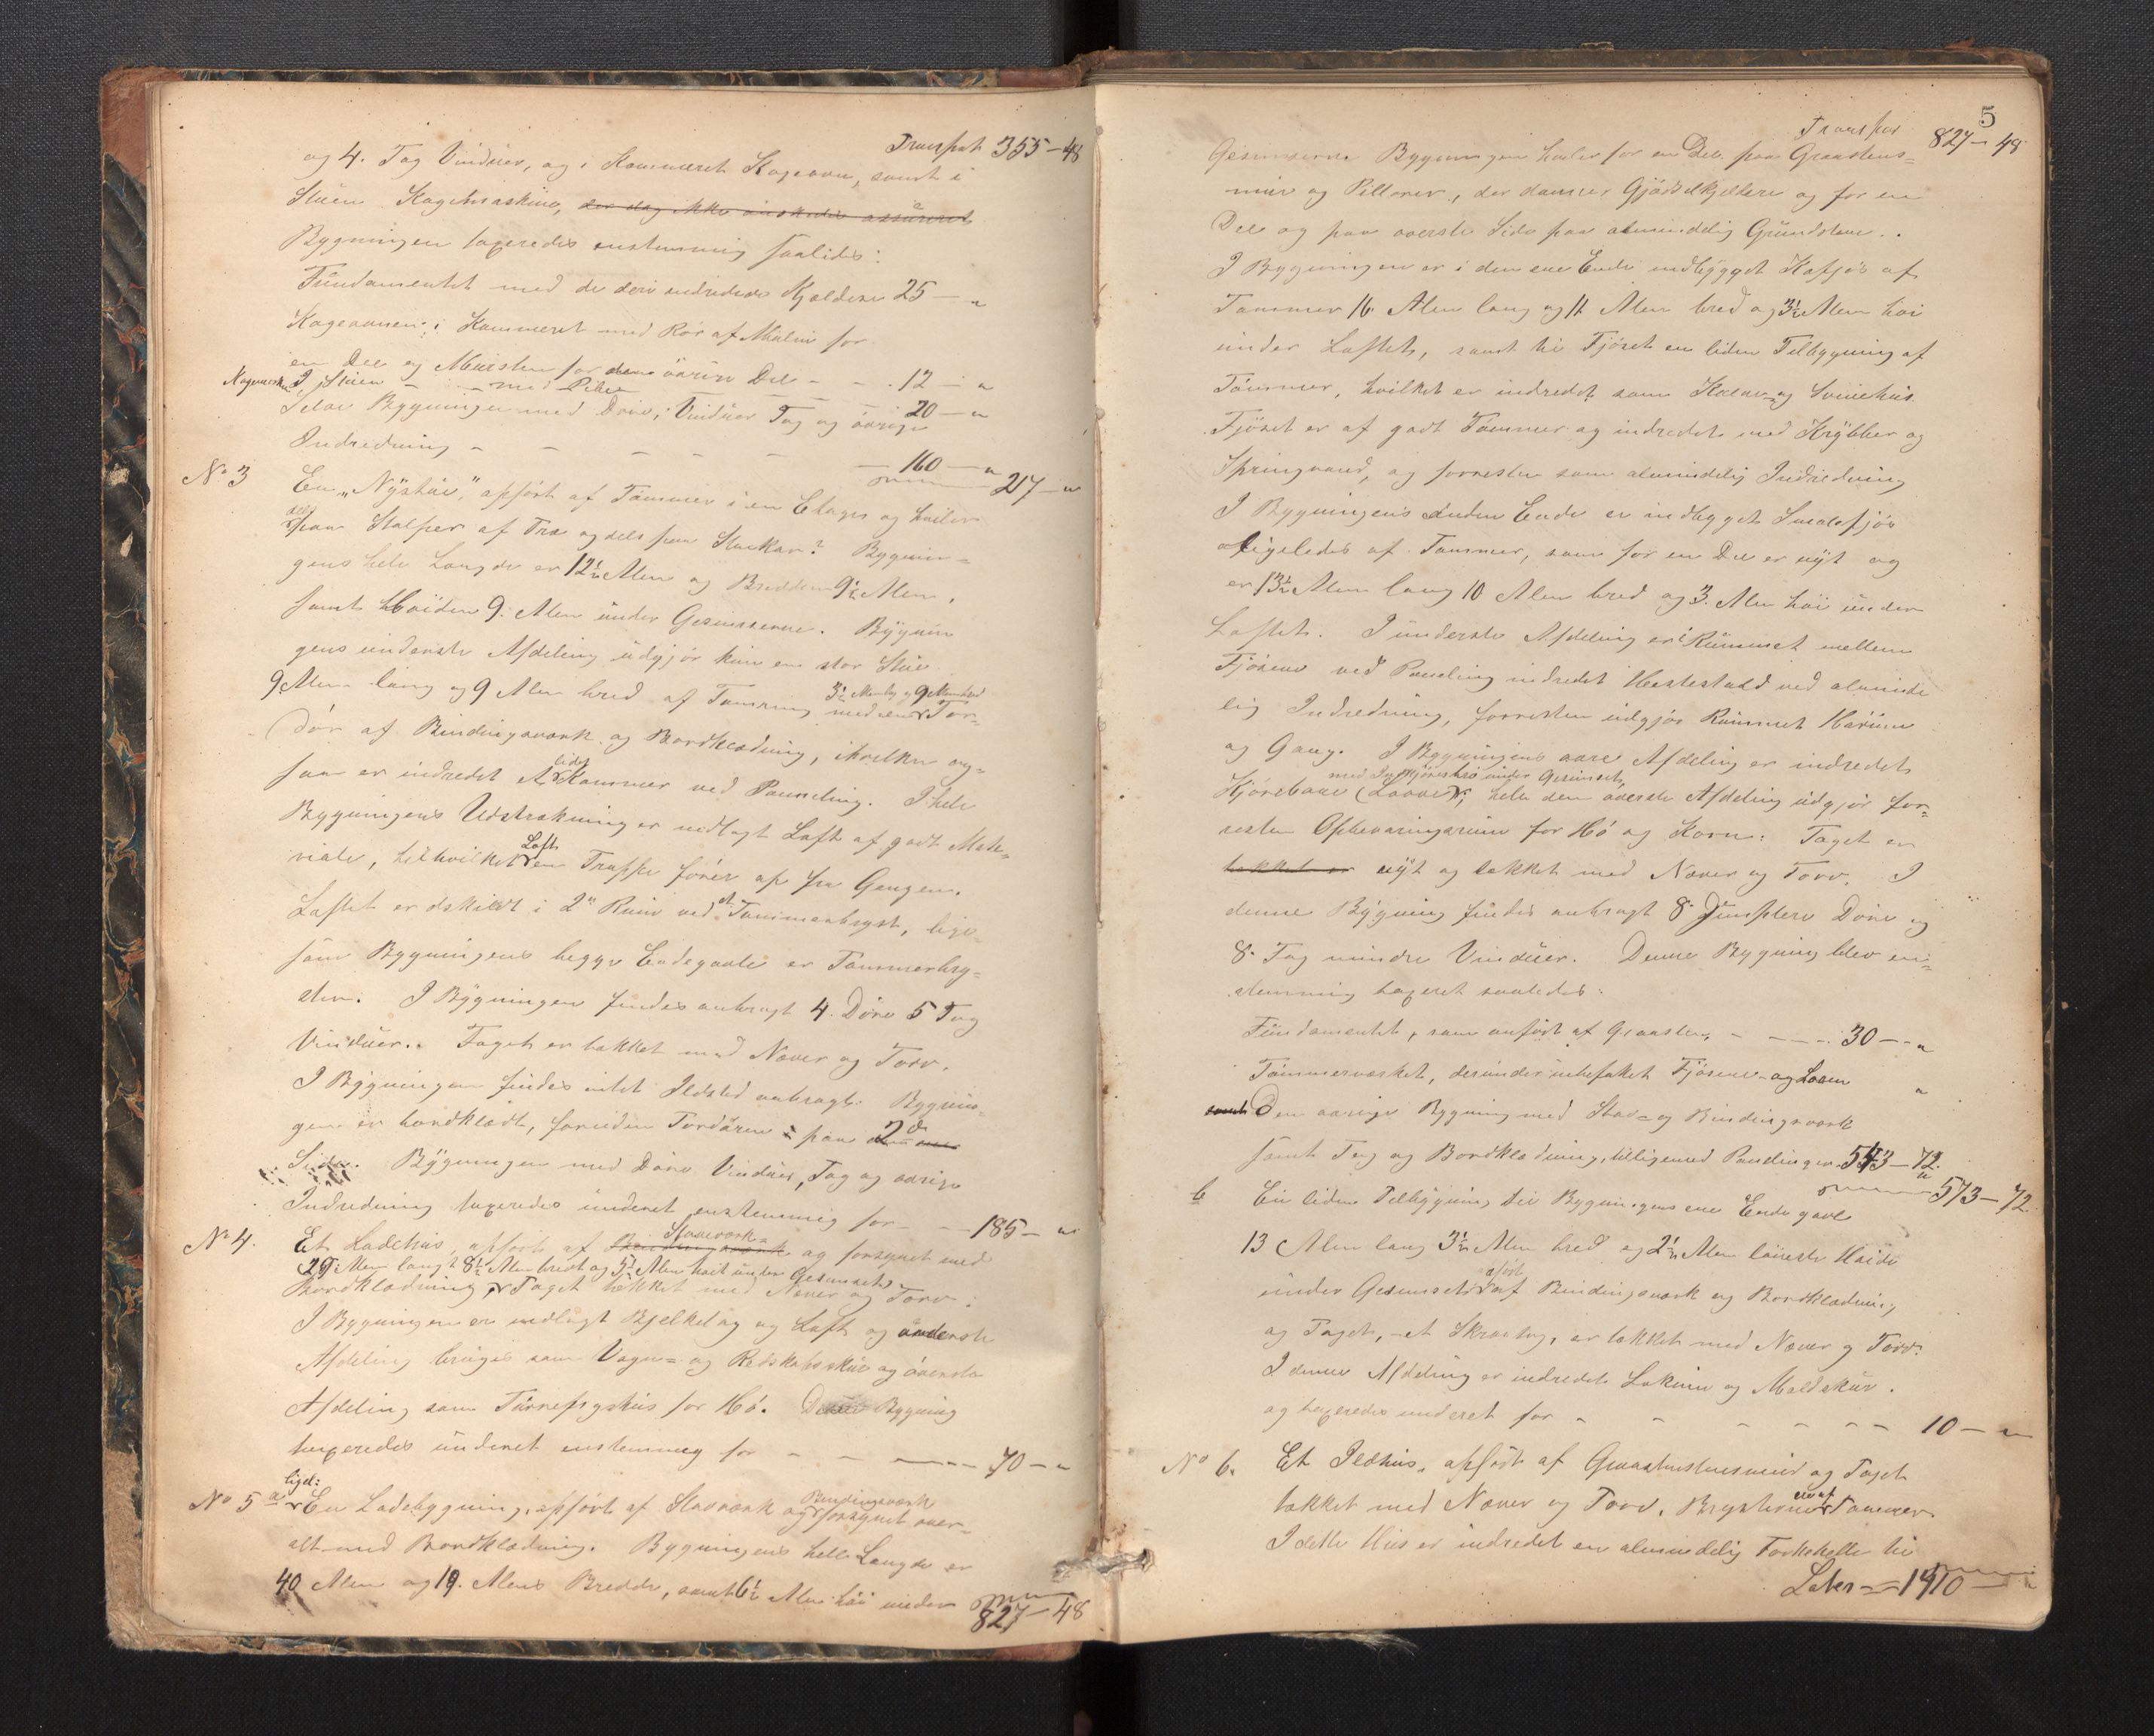 Transport 355 – 48
og 4. Fag Vinduer, og i Kammeret Kageovn, samt i
Stuen Kogemaskine, der dog ikke önskedes assureret
Bygningen taxeredes enstemmig saaledes:
Fundamentet med de deri indredede Kjeldere 25 – "
Kageovnen i Kammeret med Rör af Malm for
en Del og Mursten for den övrige Del – – 12 – "
Kogemaskin i Stuen – – med Pibe – – – 20 – "
Selve Bygningen med Döre, Vinduer Tag og övrige
Indredning – – – – – – 160 – "
217 – "
No 3 En "Nystue", opfört af Tömmer i en Etages og hviler
dels paa Stolper af Træ og dels paa Stenkar? Bygnin-
gens hele Længde er 12½ Alen og Bredden 9½ Alen,
samt Höiden 9. Alen under Gesimserne. Bygnin
gens underste Afdeling udgjör kun en stor Stue
9 Alen lang og 9 Alen bred af Tömmer med en 3½ Alen lang og 9 Alen bred For-
dör af Bindingsværk og Bordklædning, i hvilken og-
saa er indredet et lidet Kammer ved Paneling. I hele
Bygningens Udstrækning er indlagt Loft af godt Mate-
riale, til hvilket Loft en Trappe förer op fra Gangen.
Loftet er adskildt i 2de Rum ved et Tömmerbryst, lige-
som Bygningens begge Endegavle er Tömmerbry-
ster. I Bygningen findes anbragt 4. Döre 5 Fag
Vinduer. Taget er tækket med Næver og Torv.
I Bygningen findes intet Ildsted anbragt. Bygnin-
gen er bordklædt, foruden Fordören paa 2de
Sider. Bygningen med Döre Vinduer, Tag og övrige
Indredning taxeredes underet enstemmig for – – 185 – "
No 4. Et Ladehus, opfört af Bindingsværk Stavværk og forsynet med
29 Alen langt 8½ Alen bredt og 5½ Alen höit under Gesimset
Bordklædning, Taget tækket med Næver og Torv.
I Bygningen er indlagt Bjelkelag og Loft og underste
Afdeling bruges som Vogn- og Redskabsskur og överste
Afdeling som Törrefrygshus for Hö. Denne Bygning
taxeredes underet enstemmig for – – – 70 – "
No 5 a ligel: En Ladebygning, opfört af Stavværk og Bindingsværk forsynet over-
alt med Bordklædning. Bygningens hele Længde er
40 Alen og 19. Alens Bredde, samt 6½ Alen höi under
827 – 48
5
Transpor 827 – 48
Gesimserne Bygningen hviler for en Del paa Graastens-
mur og Pillarer, der danner Gjödselkjeldere og for en
Del og paa överste Side paa almindelig Grundstene.
I Bygningen er i den ene Ende indbygget Kofjös af
Tömmer 16 Alen lang og 11 Alen bred og 3½ Alen höi
under Loftet, samt til Fjöset en liden Tilbygning af
Tömmer, hvilket er indredet som Kalve- og Svinehus.
Fjöset er af godt Tömmer og indredet med Krybber og
Springvand, og forresten som almindelig Indredning
I Bygningens anden Ende er indbygget Smalefjös
ligeledes af Tömmer, som for en Del er nyt og
er 13½ Alen lang 10 Alen bred og 3. Alen höi under
Loftet. I underste Afdeling er i Rummet mellem
Fjösene ved Paneling indredet Hestestald ved alminde
lig Indredning, forresten udgjör Rummet Hörum
og Gang. I Bygningens övre Afdeling er indredet
Kjörebane (Laave) med Indkjörsbro under Gesimset, hele den överste Afdeling udgjör for-
resten Opbevaringsrum for Hö og Korn. Taget er
tækket er nyt og tækket med Næver og Torv. I
denne Bygning findes anbragt 8. Simplere Döre og
8. Fag mindre Vinduer. Denne Bygning blev en-
stemmig taxeret saaledes:
Fundamentet, som anfört af Graasten, – – – 30 – "
Tömmerværket, derunder inbefattet Fjösene og Loven "
samt Den övrige Bygning med Stav- og Bindingsværk
samt Tag og Bordklædning, tilligemed Panelingen 543 – 72
573 – 72
b En liden Tilbygning til Bygningens ene Endegavl
13 Alen lang 3½ Alen bred og 2½ Alen laveste Höide
under Gesimset opfört af Bindingsværk og Bordklædning
og Taget, et Skraatag, er tækket med Næver og Torv.
I denne Afdeling er indredet Lokum og Moldskur.
og taxeredes underet for – – – – – 10 – "
No 6. Et Ildhus, opfört af Graastensmur og Taget
tækket med Næver og Torv, Brysterne ere af Tömmer
I dette Hus er indredet en almindelig Torkehelle til
Lates – 1410 –